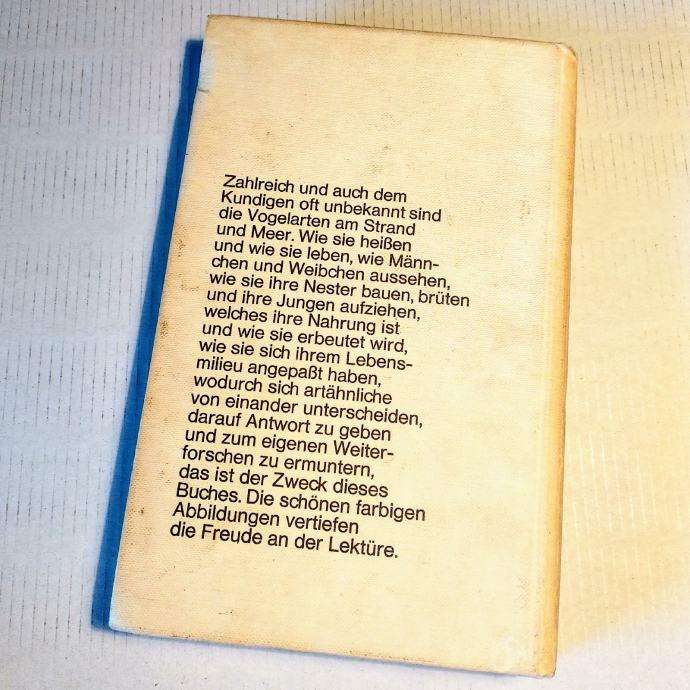 Zahlreich und auch dem
Kundigen oft unbekannt sind
die Vogelarten am Strand
und Meer. Wie sie heißen
und wie sie leben, wie Männ-
chen und Weibchen aussehen,
wie sie ihre Nester bauen, brüten
und ihre Jungen aufziehen,
welches ihre Nahrung ist
und wie sie erbeutet wird,
wie sie sich ihrem Lebens-
milieu angepaßt haben,
wodurch sich artähnliche
von einander unterscheiden,
darauf Antwort zu geben
und zum eigenen Weiter-
forschen zu ermuntern,
das ist der Zweck dieses
Buches. Die schönen farbigen
Abbildungen vertiefen
die Freude an der Lektüre.